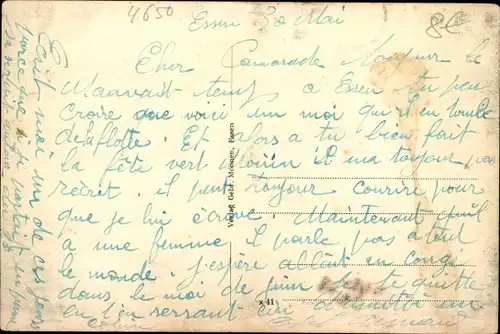 4650
8€
Essen 30 Mai
Cher Camarade Toujour le
Mauvait temp a Essen tu peu
croire que voici un moi qu'il en tombe
de la flotte. Et alors a tu bien fait
la fête vert il ma toujour pas
recrit, il peut toujour courire pour
que je lui écrive. Maintenant qu'il
a une femme il parle pas a tout
le monde. J'espère allait en congé
dans le moi de juin. Je te quitte
en t'en serrant
Ecrit moi un de ces jours
parce que si tu
Verlag Gebr. Moenen, Essen
x 41